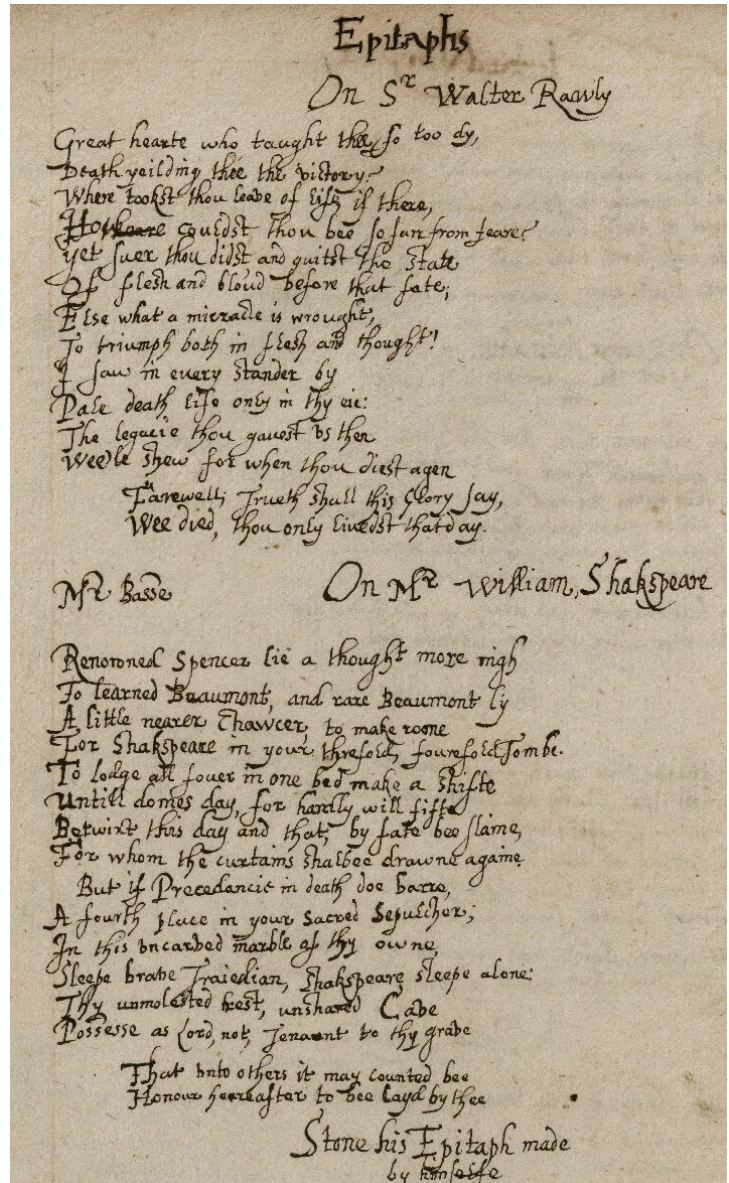 Epitaphs
On Sr Walter Rawly
Great hearte who taught thee so too dy,
Death yeilding thee the victory?
Where tookst thou leave of life if there,
How couldst thou bee so farr from feare?
Yet suer thou didst and quitst the state
Of flesh and bloud before that fate;
Else what a mirracle is wrought,
To triumph both in flesh and thought!
I saw in every stander by
Pale death life only in thy eie:
The legacie thou gavest vs then
Weele shew for when thou diest agen
Farewell; Trueth shall this Glory say,
Wee died, thou only livedst that day.
Mr Basse
On Mr William, Shakspeare
Renowned Spencer lie a thought more nigh
To learned Beaumont, and rare Beaumont ly
A little nearer Chawcer, to make roome
For Shakspeare in your threfold, fourefold Tombe.
To lodge all fouer in one bed make a shifte
Untill domes day, for hardly will fifte
Betwixt this day and that, by fate bee slaine,
For whom the curtains shalbee drawne againe
But if Precedancie in death doe barre,
A fourth place in your Sacred Sepulcher;
In this vncarved marble of thy owne,
Sleepe brave Traiedian, Shakspeare sleepe alone:
Thy unmolested rest, unshared Cave
Possesse as Lord, not, Tenaunt to thy grave
That vnto others it may counted bee
Honour hereafter to bee layd by thee
Stone his Epitaph made
by himselfe